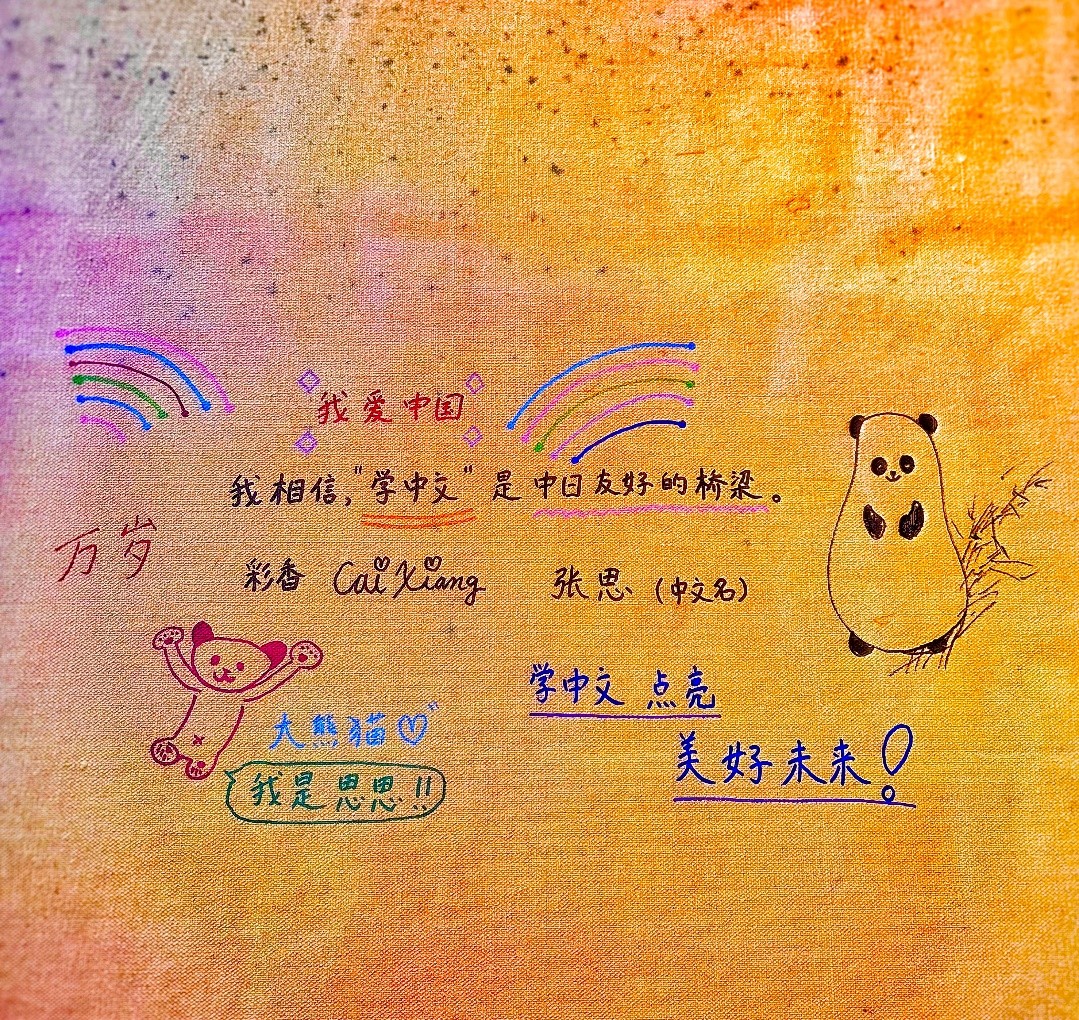 我爱中国
我相信，"学中文"是中日友好的桥梁。
万岁
彩香 Cai Xiang 张思（中文名）
学中文 点亮
大熊猫♡
美好未来！
我是思思!!